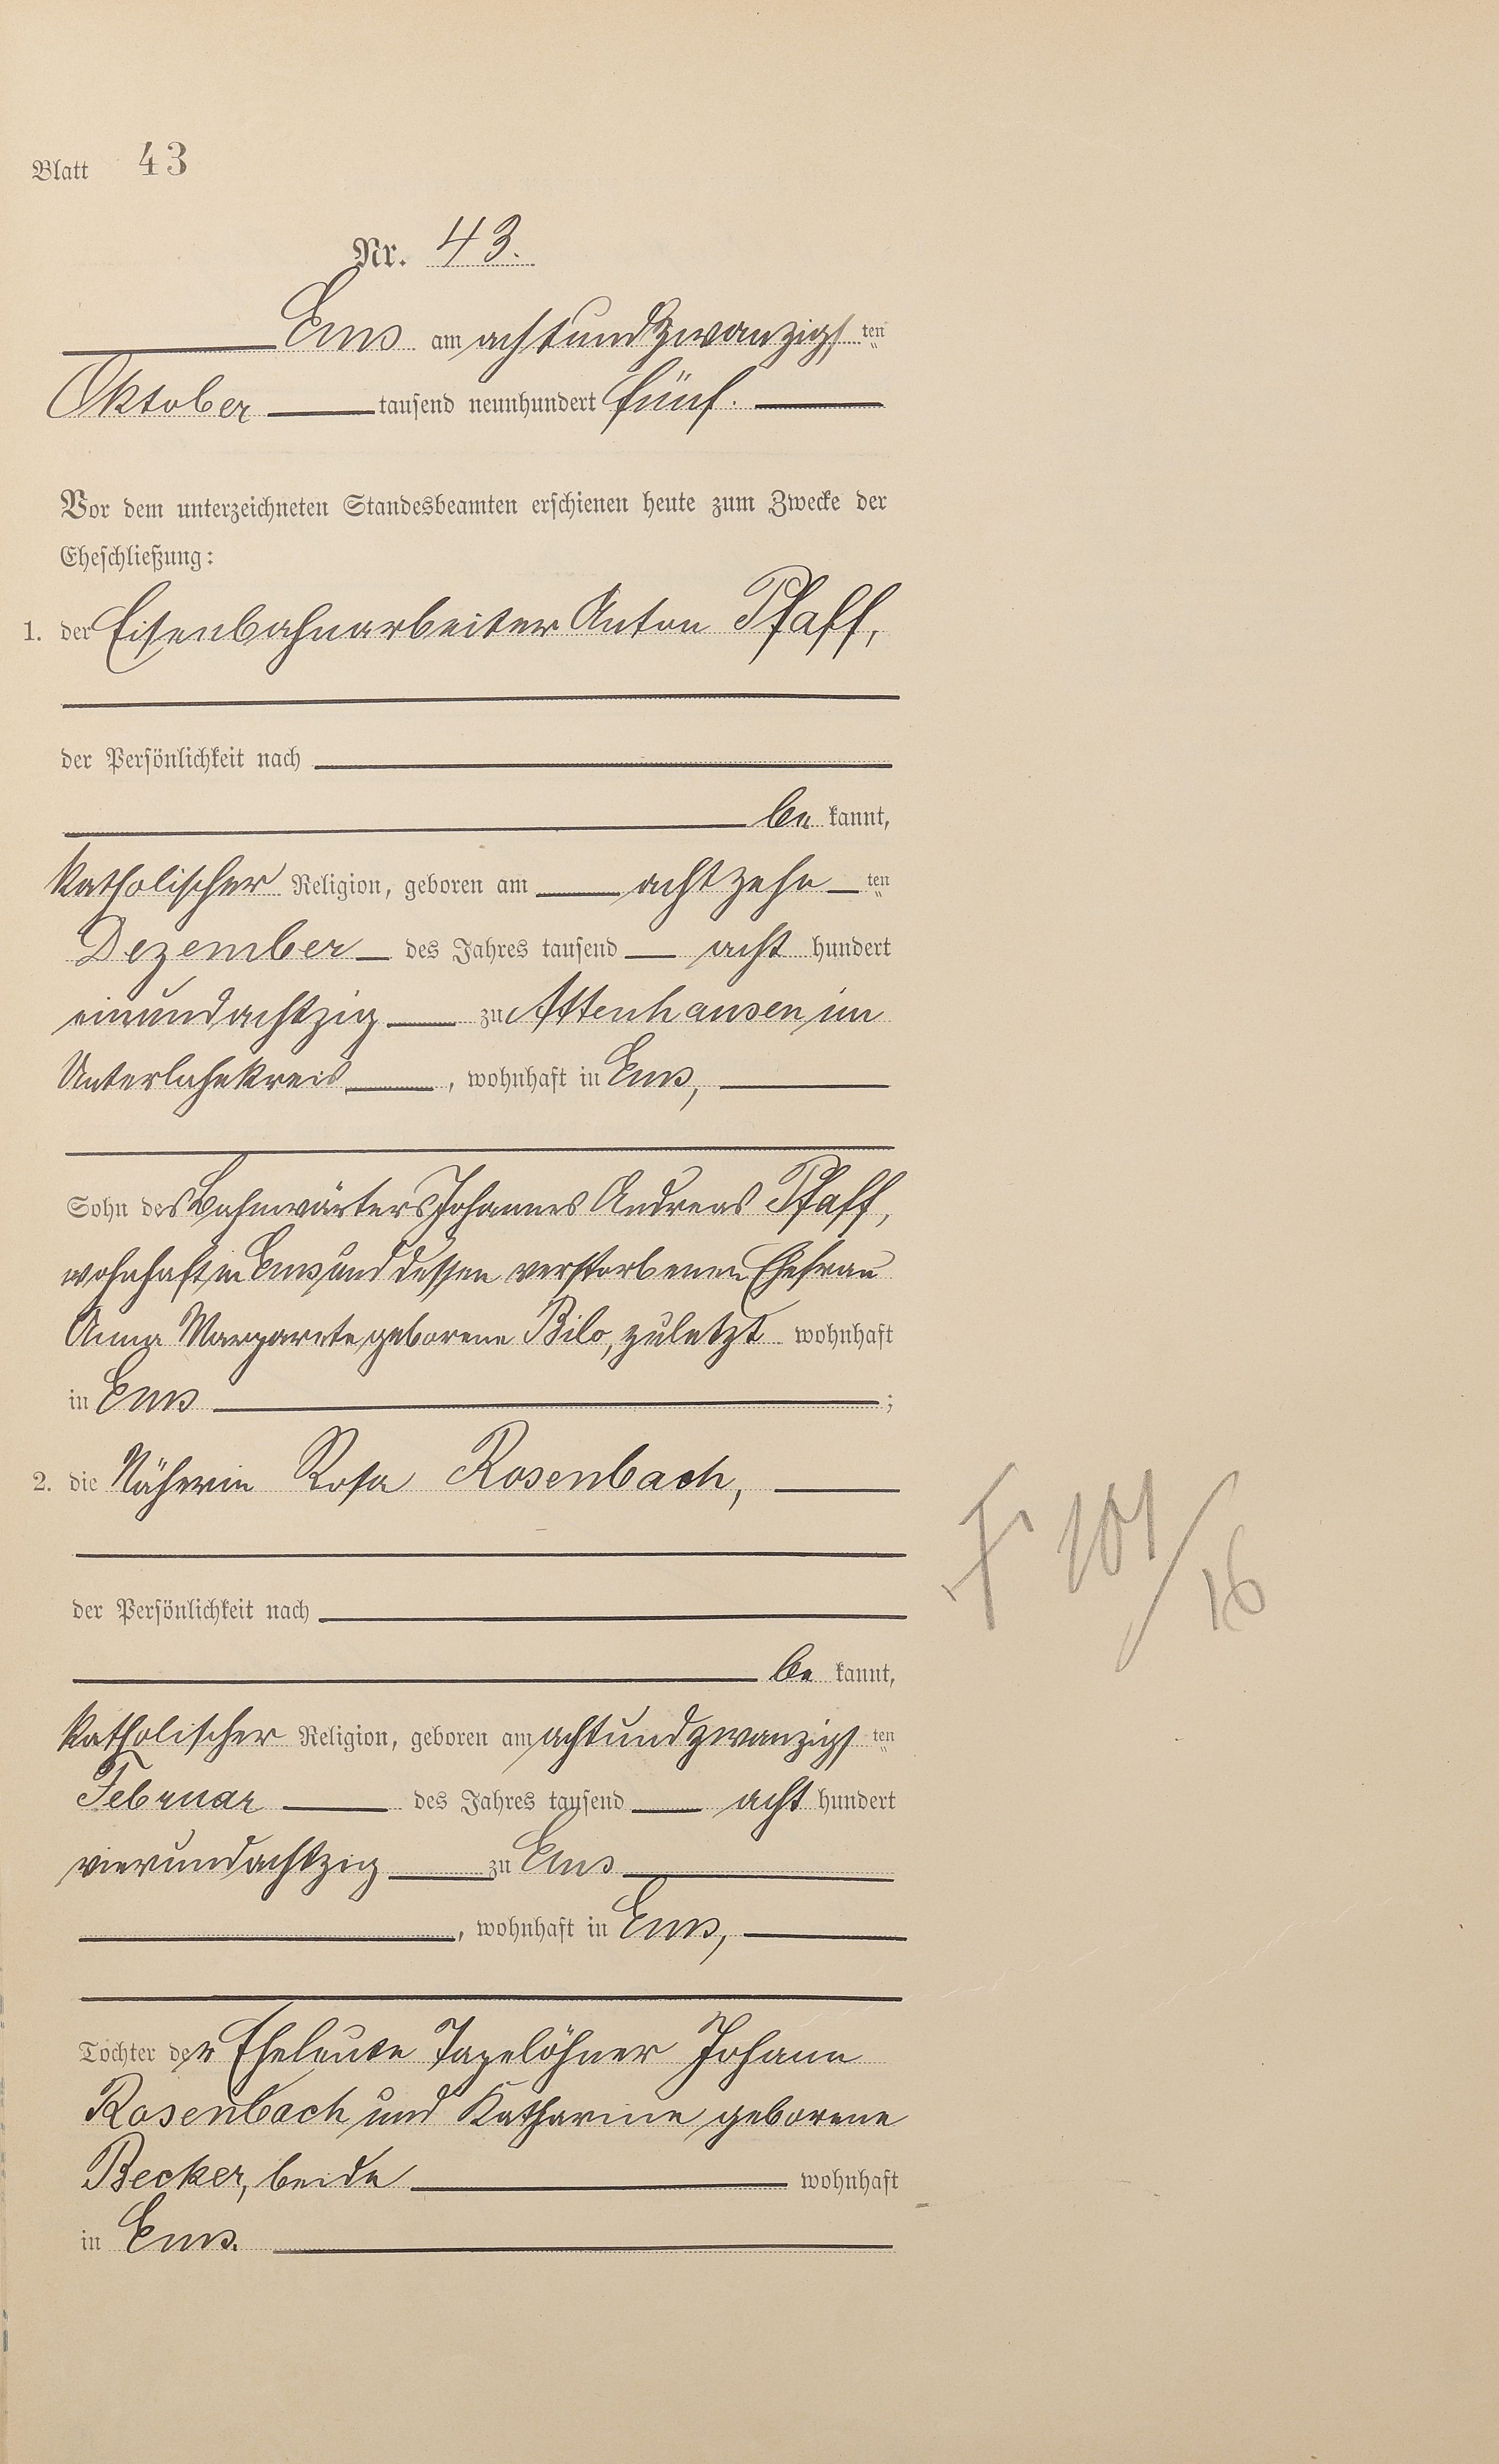 Blatt 43
Nr. 43.
Ems am achtundzwanzigsten
Oktober tausend neunhundert fünf.
Vor dem unterzeichneten Standesbeamten erschienen heute zum Zwecke der
Eheschließung:
1. der Eisenbahnarbeiter Anton Pfaff,
der Persönlichkeit nach
be kannt,
katholischer Religion, geboren am achtzehn ten
Dezember des Jahres tausend acht hundert
einundachtzig zu Attenhausen im
Unterlahnkreis, wohnhaft in Ems,
Sohn des Bahnwärters Johannes Andreas Pfaff,
wohnhaft in Ems und dessen verstorbenen Ehefrau
Anna Margarete geborene Bilo, zuletzt wohnhaft
in Ems ;
2. die Näherin Rosa Rosenbach,
der Persönlichkeit nach
be kannt,
katholischer Religion, geboren am achtundzwanzigsten
Februar des Jahres tausend acht hundert
vierundachtzig zu Ems
, wohnhaft in Ems,
Tochter der Eheleute Tagelöhner Johann
Rosenbach und Katharine geborene
Becker, beide wohnhaft
in Ems.
101/16